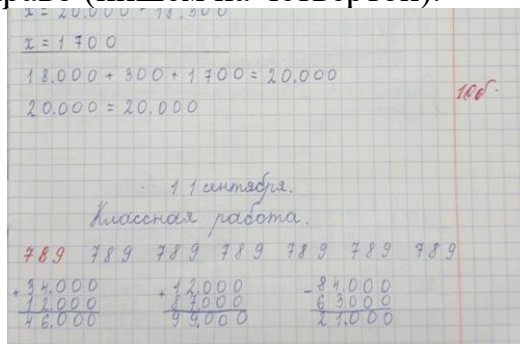 раво (пишем на четвертой).
x = 20.000 - 18.300
x = 1 700
18.000 + 300 + 1 700 = 20.000
20.000 = 20.000
10б.
11 сентября.
Классная работа.
789 789 789 789 789 789 789
+ 34.000 + 12.000 - 84.000
12.000 87.000 63.000
46.000 99.000 21.000